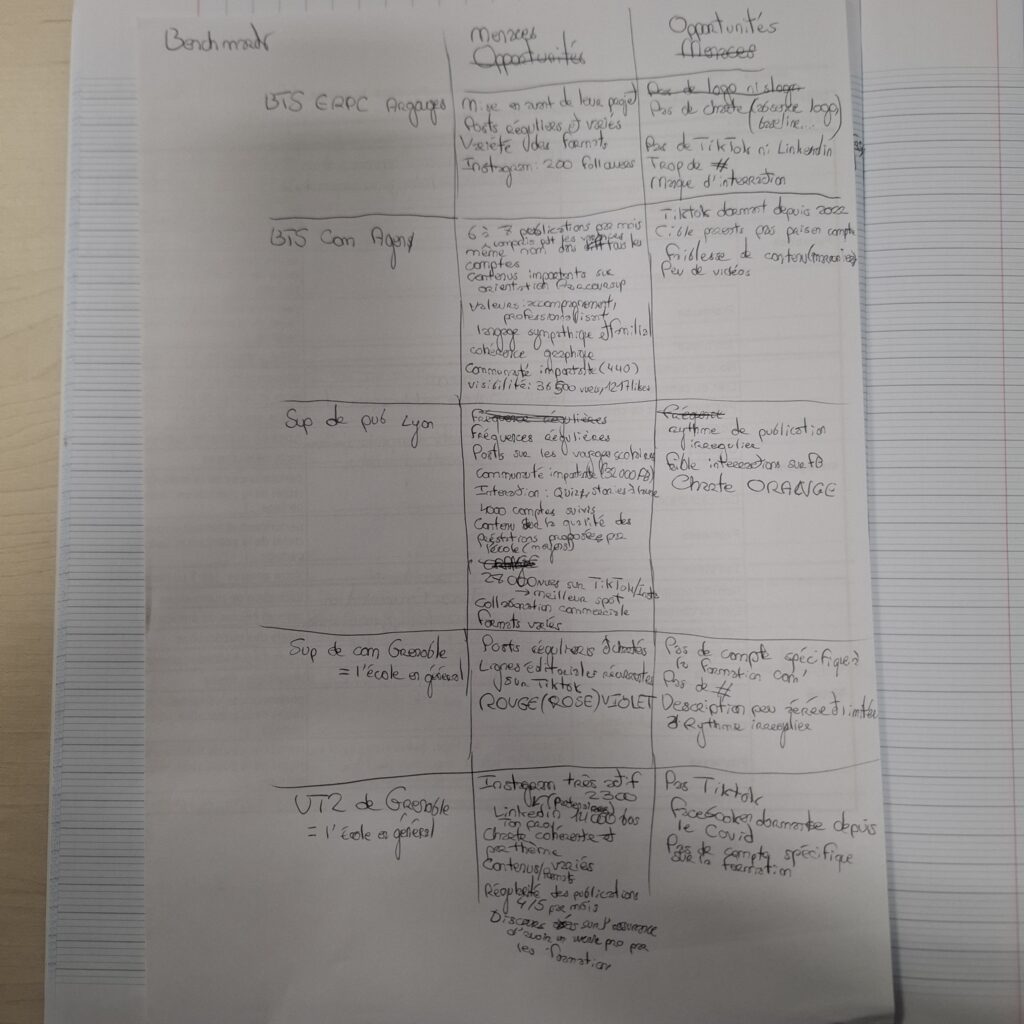 Benchmark
Menaces
Opportunités
Opportunités
Menaces
BTS ERPC Argages
Mise en avant de leur projet
Posts réguliers et variés
Variété des formats
Instagram : 200 followers
Pas de logo ni slogan
Pas de charte (absence logo,
baseline...)
Pas de TikTok ni Linkedin
Trop de #
Manque d'interaction
BTS Com Agery
6 à 7 publications par mois
y compris pdt les vacances
même nom dans tous les
comptes
Contenus importants sur
orientation Parcoursup
Valeurs : accompagnement,
professionnalisant
langage sympathique et familial
cohérence graphique
Communauté importante (440)
visibilité : 36 500 vues, 1217 likes
Tiktok dormant depuis 2022
Cible parents pas prise en compte
faiblesse de contenu
Peu de vidéos
Sup de pub Lyon
Fréquences régulières
Fréquences régulières
Posts sur les voyages scolaires
Communauté importante (32 000 FB)
Interaction : Quizz, stories à
4000 comptes suivis
Contenu sur la qualité des
prestations proposées par
l'école (majors)
ORANGE
28 000 vues sur TikTok/Insta
→ meilleur spot
Collaboration commerciale
formats variés
rythme de publication
irrégulier
faible interractions sur FB
Charte ORANGE
Sup de com Grenoble
= l'école en général
Posts réguliers
Lignes éditoriales récurrentes
sur Tiktok
ROUGE (ROSE) VIOLET
Pas de compte spécifique à
la formation com'
Pas de #
Description peu
Rythme irrégulier
UT2 de Grenoble
= l'école en général
Instagram très actif
2300
Linkedin
ton pro
Charte cohérente
par thème
Contenus variés
formats
Régularité des publications
4/5 par mois
Discours sur l'assurance
d'avoir un pro par
les formation
Pas Tiktok
Facebook dormante depuis
le Covid
Pas de compte spécifique
sur la formation